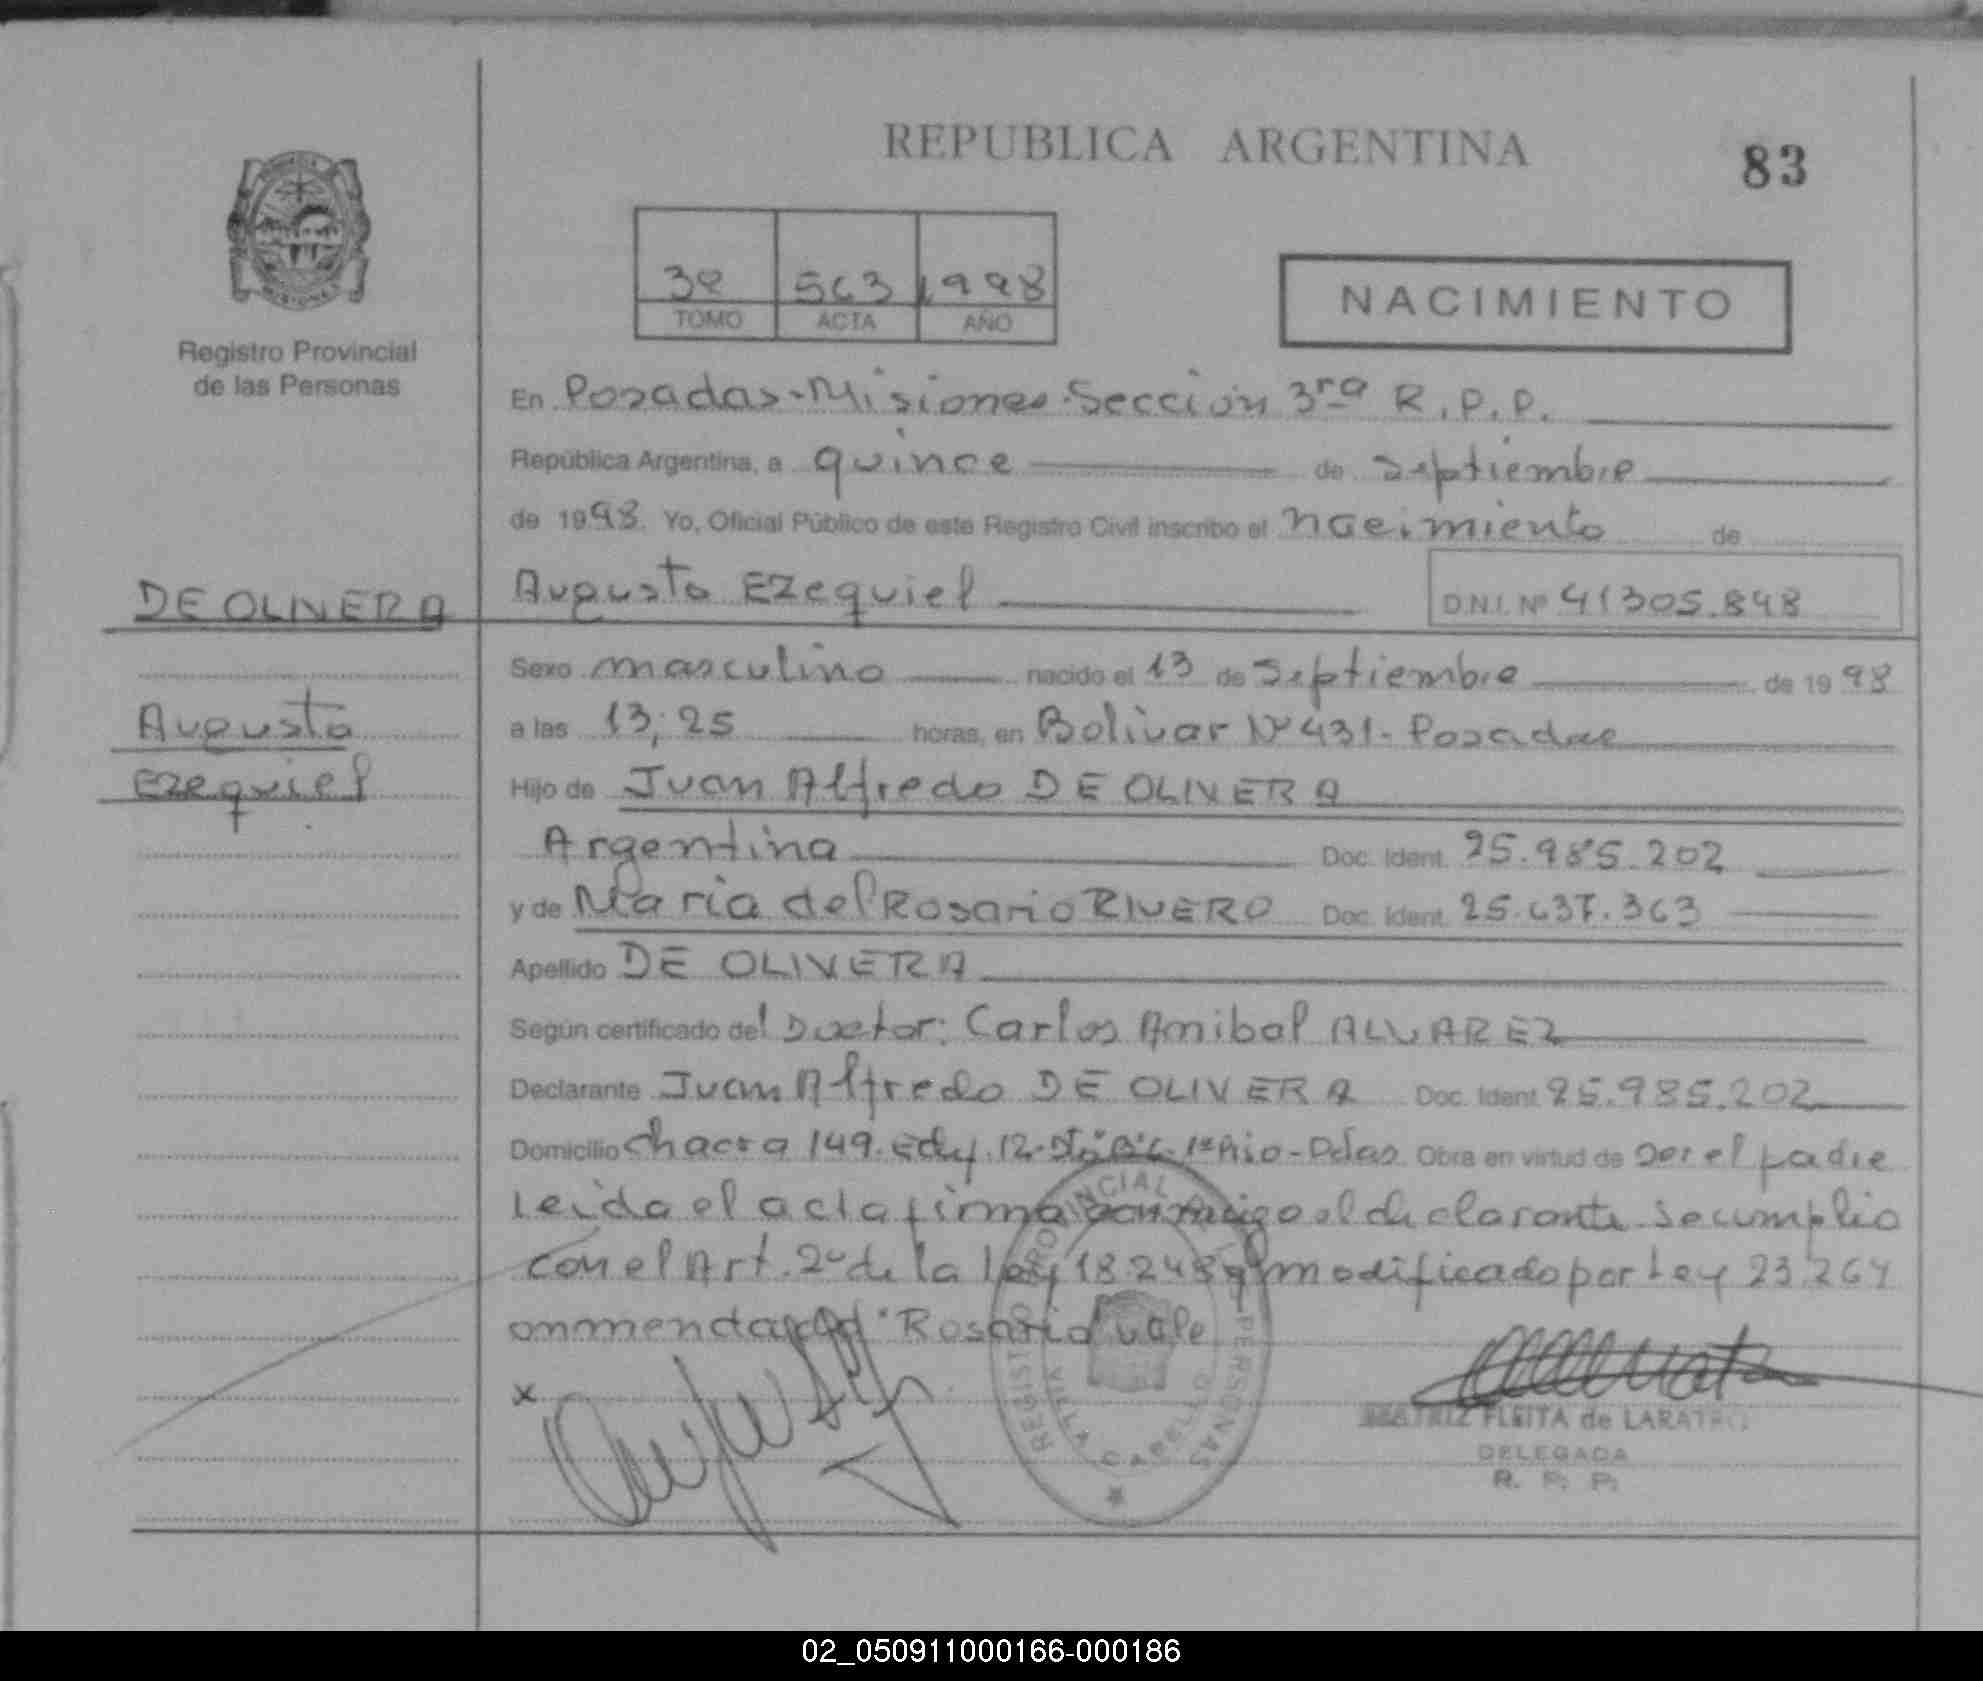 REPUBLICA ARGENTINA
83
3º 563 1998
TOMO ACTA AÑO
NACIMIENTO
Registro Provincial
de las Personas
En Posadas-Misiones-Sección 3ra R.P.P.
República Argentina, a quince de Septiembre
de 1998. Yo, Oficial Público de este Registro Civil inscribo el nacimiento de
DE OLIVERA
Augusto Ezequiel
D.N.I. Nº 41305.848
Sexo masculino nacido el 13 de Septiembre de 1998
Augusto
a las 13;25 horas, en Bolivar Nº 431- Posadas
Ezequiel
Hijo de Juan Alfredo DE OLIVERA
Argentina Doc. Ident. 25.985.202
y de Maria del Rosario RIVERO Doc. Ident. 25.637.363
Apellido DE OLIVERA
Según certificado del Doctor: Carlos Anibal ALVAREZ
Declarante Juan Alfredo DE OLIVERA Doc. Ident. 25.985.202
Domicilio chacra 149. Edif. 12- 1º Piso - Pdas Obra en virtud de ser el padre
Leida el acta firma conmigo el declarante. Se cumplio
con el Art. 2º de la Ley 18.248 modificado por Ley 23.264
enmendado "Rosario" vale
x
REGISTRO PROVINCIAL DE LAS PERSONAS
BEATRIZ FLEITA de LARATRO
DELEGADA
R. P. P.
02_050911000166-000186